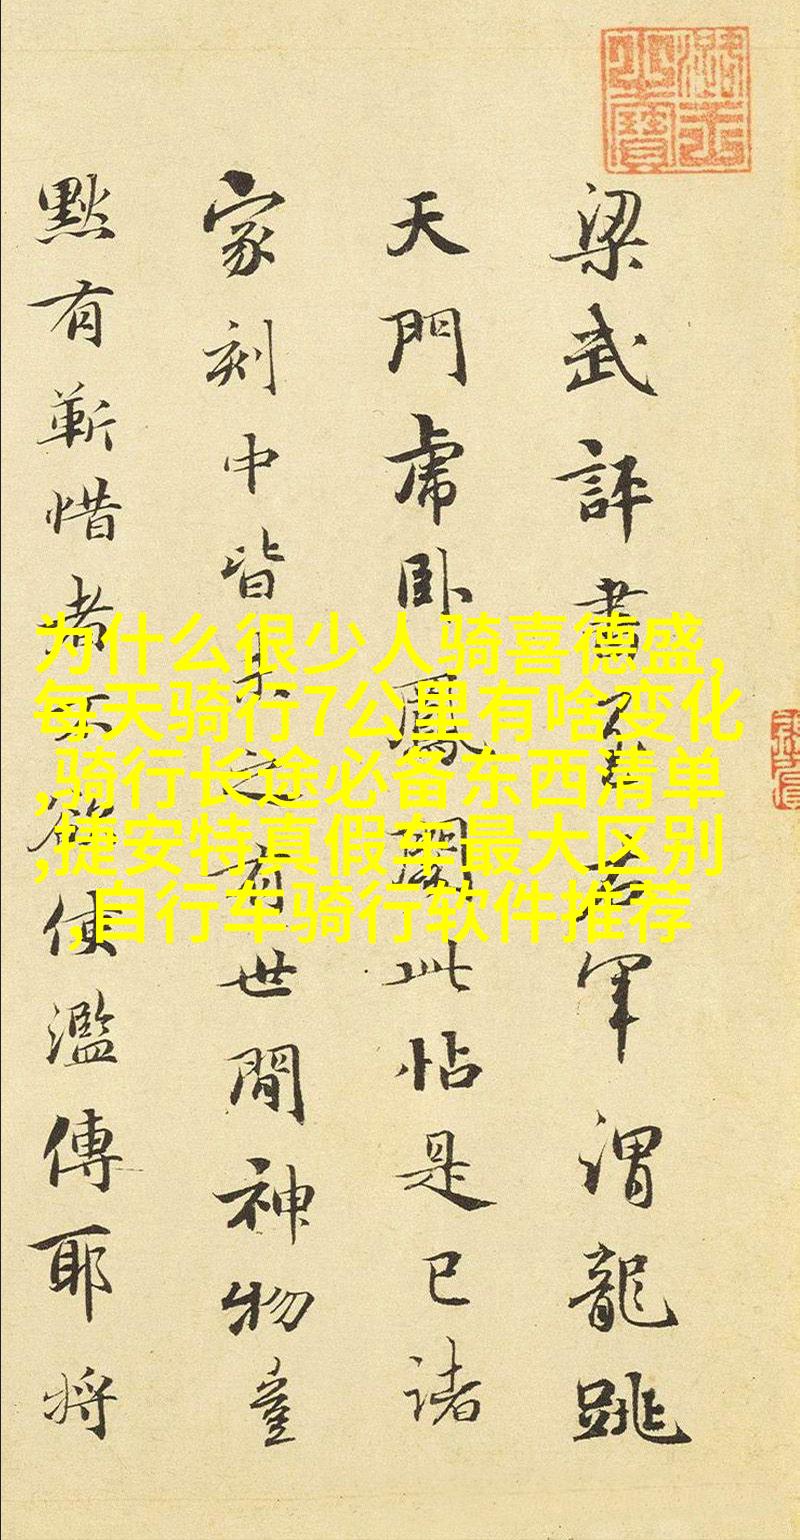 梁武評書至右軍謂龍跳
天門虎臥鳳閣此帖是已諸
家刻中皆未之有世間神物豈
黙有靳惜者不欲使濫傳耶将
为什么很少人骑喜德盛,
每天骑行7公里有啥变化
,骑行长途必备东西清单
,捷安特真假车最大区别
,自行车骑行软件推荐